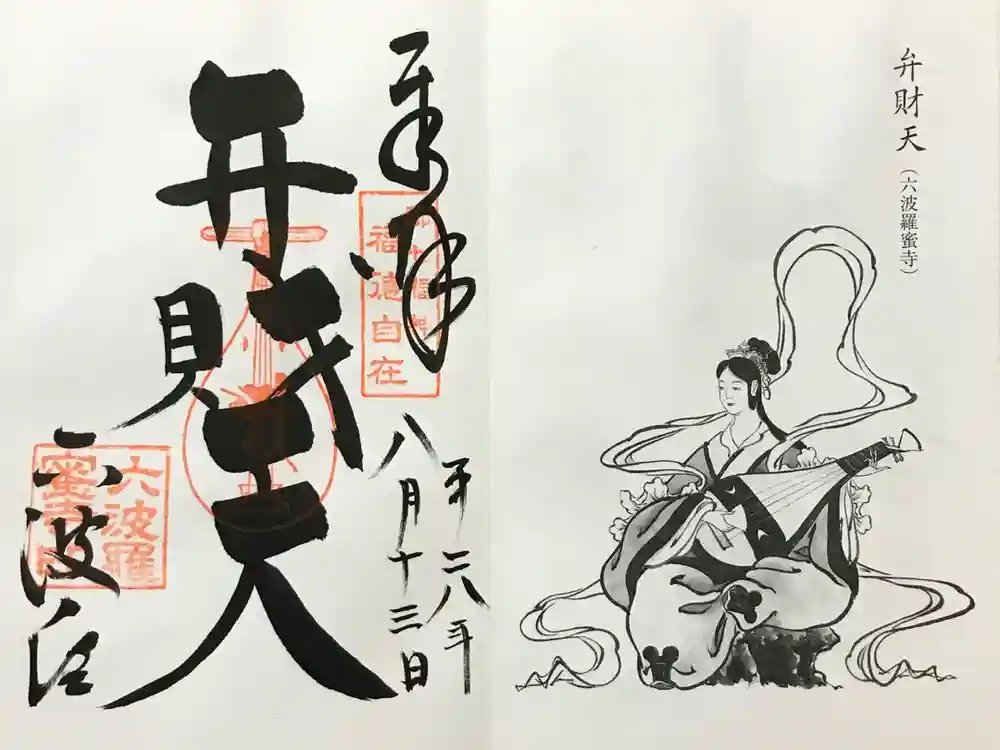 弁財天
（六波羅蜜寺）
奉拝
平二八年
八月十三日
福徳自在
弁財天
六波羅
蜜寺印
六波